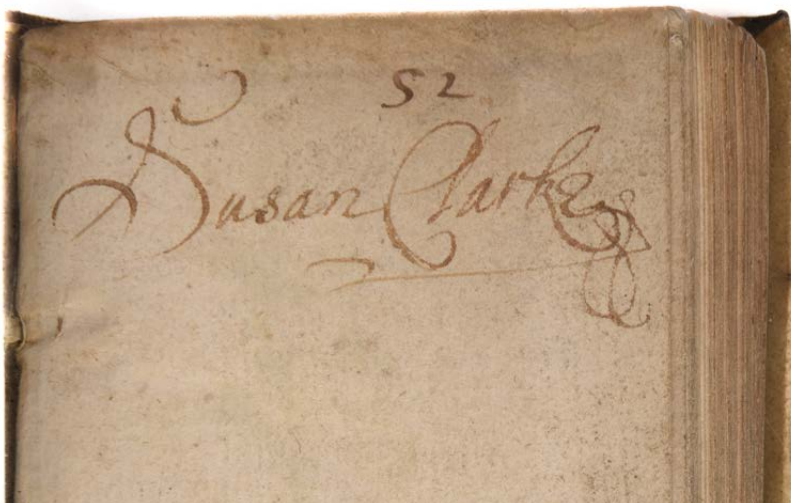 52
Susan Clarke